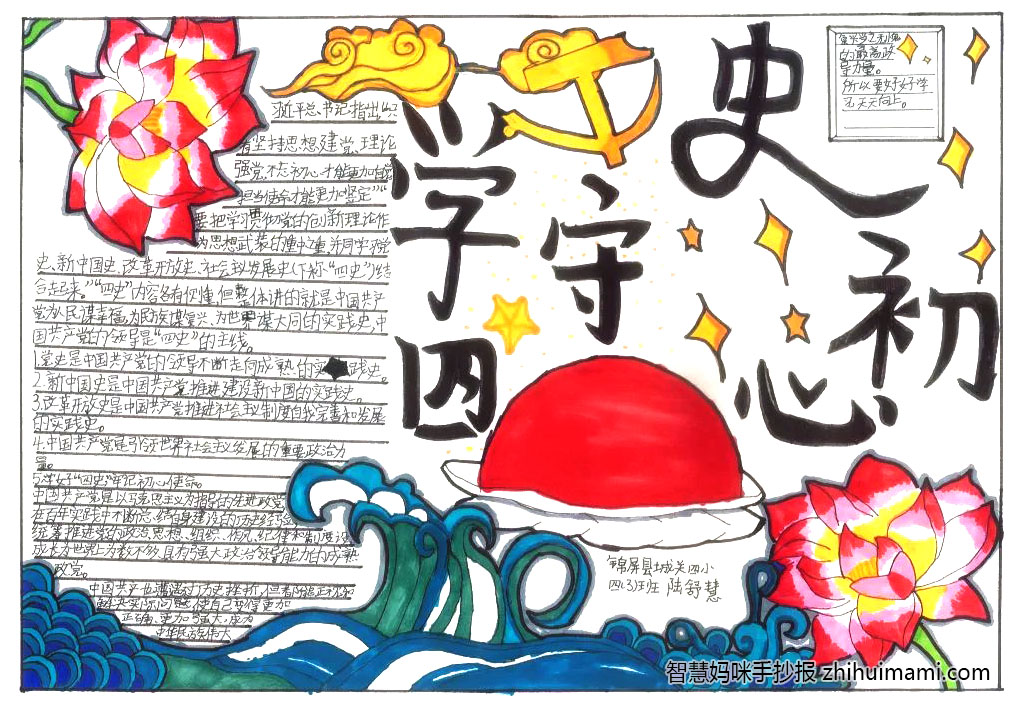 学四史
守初心
习近平总书记指出，"只
有坚持思想建党、理论
强党，不忘初心才能更加自觉，
担当使命才能更加坚定""
要把学习贯彻党的创新理论作
为思想武装的重中之重，并同学习党
史、新中国史、改革开放史、社会主义发展史(下称"四史")结
合起来。""四史"内容各有侧重，但整体讲的就是中国共产
党为人民谋幸福、为民族谋复兴、为世界谋大同的实践史，中
国共产党的领导是"四史"的主线。
1.党史是中国共产党的领导不断走向成熟的实践史。
2.新中国史是中国共产党推进建设新中国的实践史。
3.改革开放史是中国共产党推进社会主义制度自我完善和发展
的实践史。
4.中国共产党是引领世界社会主义发展的重要政治力
量。
5.学好"四史"牢记初心使命。
中国共产党是以马克思主义为指导的先进政党
在百年实践中不断总结自身建设的历史经验
统筹推进党的政治、思想、组织、作风、纪律和制度设
成长为世界上为数不多具有强大政治领导能力的成熟
政党。
中国共产
解决实际问题，使自己变得更加
正确、更加强大，成为
中华民族伟大
复兴
的最高政
导力量。
所以要好好学
天天向上。
锦屏县城关四小
四(3)班 陆舒慧
智慧妈咪手抄报 zhihuimami.com